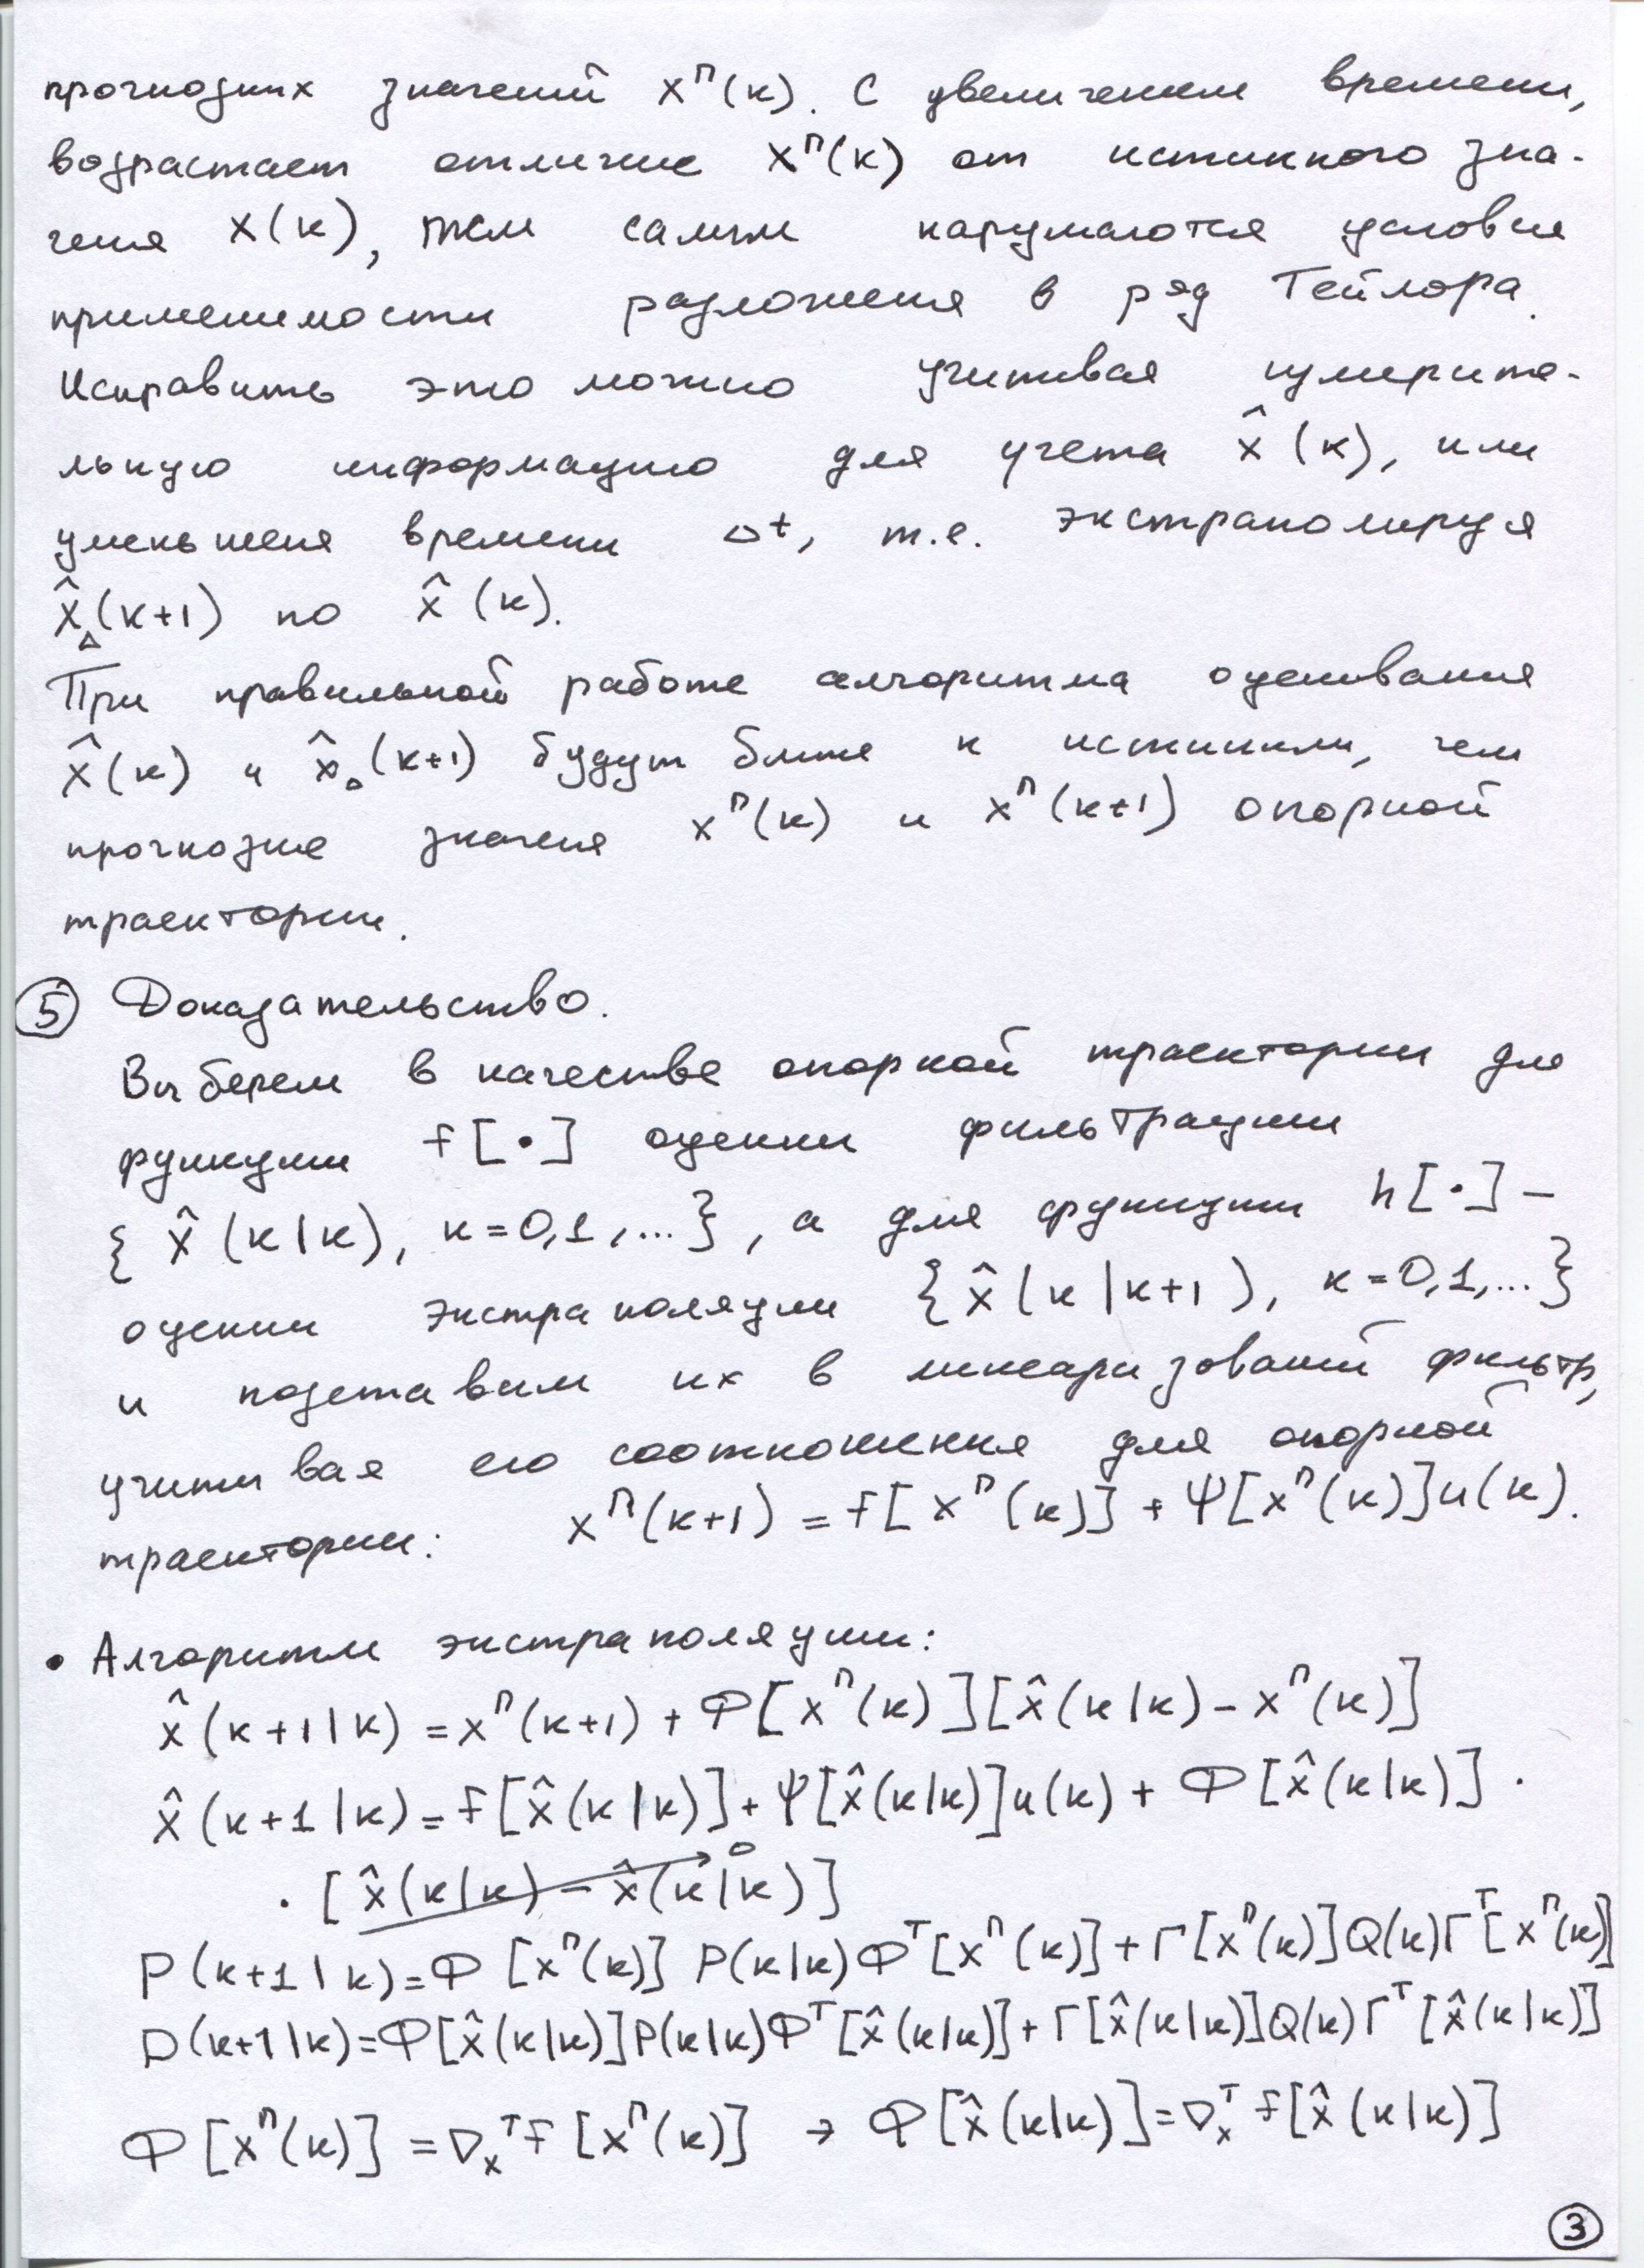 прогнозних значений xⁿ(к). С увеличением времени,
возрастает отличие xⁿ(к) от истинного зна-
чения x(к), тем самым нарушаются условия
применимости разложения в ряд Тейлора.
Исправить это можно учитывая измерите-
льную информацию для учета x̂(к), или
уменьшения времени Δt, т.е. экстраполируя
x̂_Δ(к+1) по x̂(к).
При правильной работе алгоритма оценивания
x̂(к) и x̂_Δ(к+1) будут ближе к истинным, чем
прогнозные значения xⁿ(к) и xⁿ(к+1) опорной
траектории.
⑤ Доказательство.
Выберем в качестве опорной траектории для
функции f[•] оценки фильтрации
{x̂(к|к), к=0,1,...}, а для функции h[•] –
оценки экстраполяции {x̂(к|к+1), к=0,1,...}
и подставим их в линеаризований фильтр,
учитывая его соотношения для опорной
траектории: xⁿ(к+1) = f[xⁿ(к)] + Ψ[xⁿ(к)]u(к).
• Алгоритм экстраполяции:
x̂(к+1|к) = xⁿ(к+1) + Φ[xⁿ(к)][x̂(к|к) – xⁿ(к)]
x̂(к+1|к) = f[x̂(к|к)] + Ψ[x̂(к|к)]u(к) + Φ[x̂(к|к)] ·
· [x̂(к|к) – x̂(к|к)] → 0
P(к+1|к) = Φ[xⁿ(к)] P(к|к) Φᵀ[xⁿ(к)] + Γ[xⁿ(к)]Q(к)Γᵀ[xⁿ(к)]
P(к+1|к) = Φ[x̂(к|к)]P(к|к)Φᵀ[x̂(к|к)] + Γ[x̂(к|к)]Q(к)Γᵀ[x̂(к|к)]
Φ[xⁿ(к)] = ∇ₓᵀf[xⁿ(к)] → Φ[x̂(к|к)] = ∇ₓᵀ f[x̂(к|к)]
③